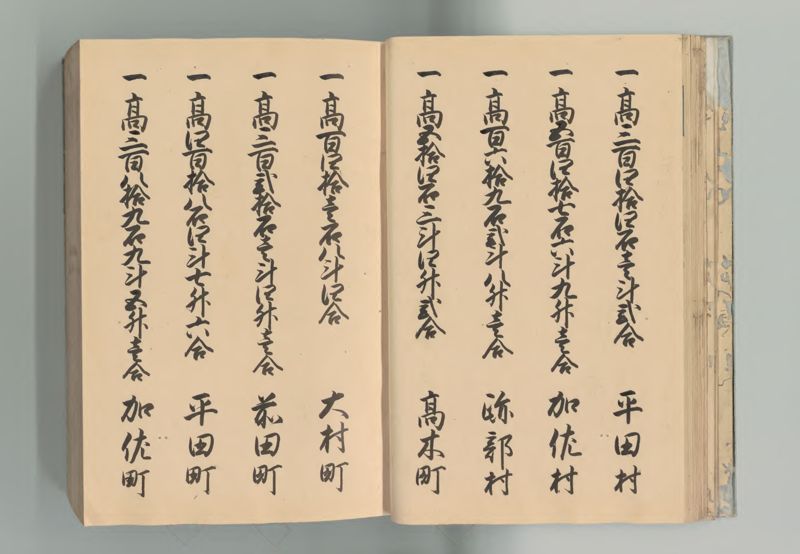 一 高三百四拾四石壱斗弐合 平田村
一 高五百四拾七石六斗九升壱合 加佐村
一 高百六拾九石弐斗八升壱合 跡部村
一 高五拾四石三斗四升弐合 高木町
一 高百四拾壱石八斗四合 大村町
一 高三百弐拾石壱斗四升壱合 前田町
一 高四百拾八石四斗七升六合 平田町
一 高三百八拾九石九斗五升壱合 加佐町